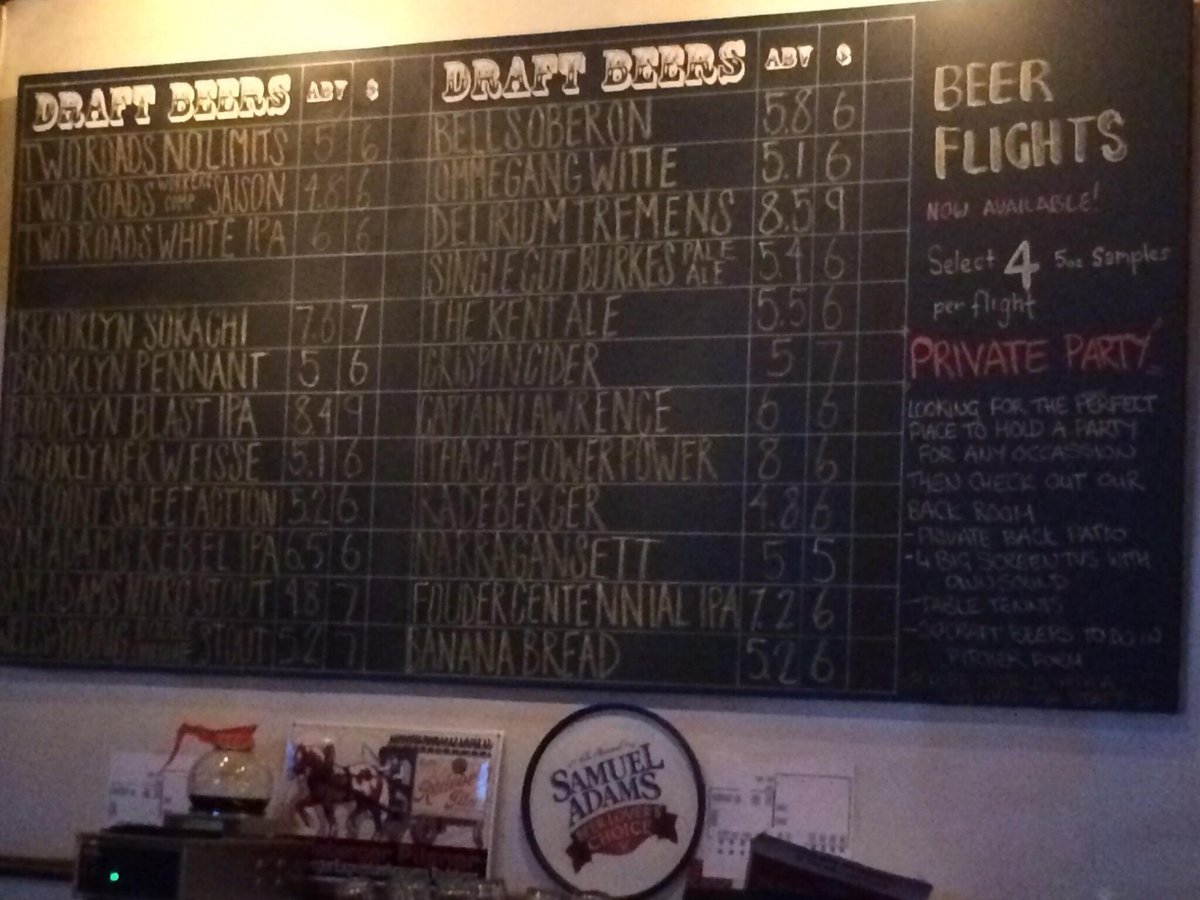 DRAFT BEERS ABV $
TWO ROADS NO LIMITS 5 6
TWO ROADS WORKERS COMP SAISON 4.8 6
TWO ROADS WHITE IPA 6 6
BROOKLYN SORACHI 7.6 7
BROOKLYN PENNANT 5 6
BROOKLYN BLAST IPA 8.4 9
BROOKLYNER WEISSE 5.1 6
SIXPOINT SWEET ACTION 5.2 6
SAM ADAMS REBEL IPA 6.5 6
SAM ADAMS NITRO STOUT 4.8 7
WELLS YOUNG STOUT 5.2 7
DRAFT BEERS ABV $
BELLS OBERON 5.8 6
OMMEGANG WITTE 5.1 6
DELIRIUM TREMENS 8.5 9
SINGLECUT BURKES PALE ALE 5.4 6
THE KENT ALE 5.5 6
CRISPIN CIDER 5 7
CAPTAIN LAWRENCE 6 6
ITHACA FLOWER POWER 8 6
RADEBERGER 4.8 6
NARRAGANSETT 5 5
FOUDER CENTENNIAL IPA 7.2 6
BANANA BREAD 5.2 6
BEER
FLIGHTS
NOW AVAILABLE!
Select 4 5oz Samples
per flight
PRIVATE PARTY
LOOKING FOR THE PERFECT
PLACE TO HOLD A PARTY
FOR ANY OCCASSION
THEN CHECK OUT OUR
BACK ROOM
-PRIVATE BACK PATIO
-4 BIG SCREEN TVS WITH
OWN SOUND
-TABLE TENNIS
-20 CRAFT BEERS TO DO IN
PITCHER FORM
SAMUEL
ADAMS
BEER LOVER'S
CHOICE